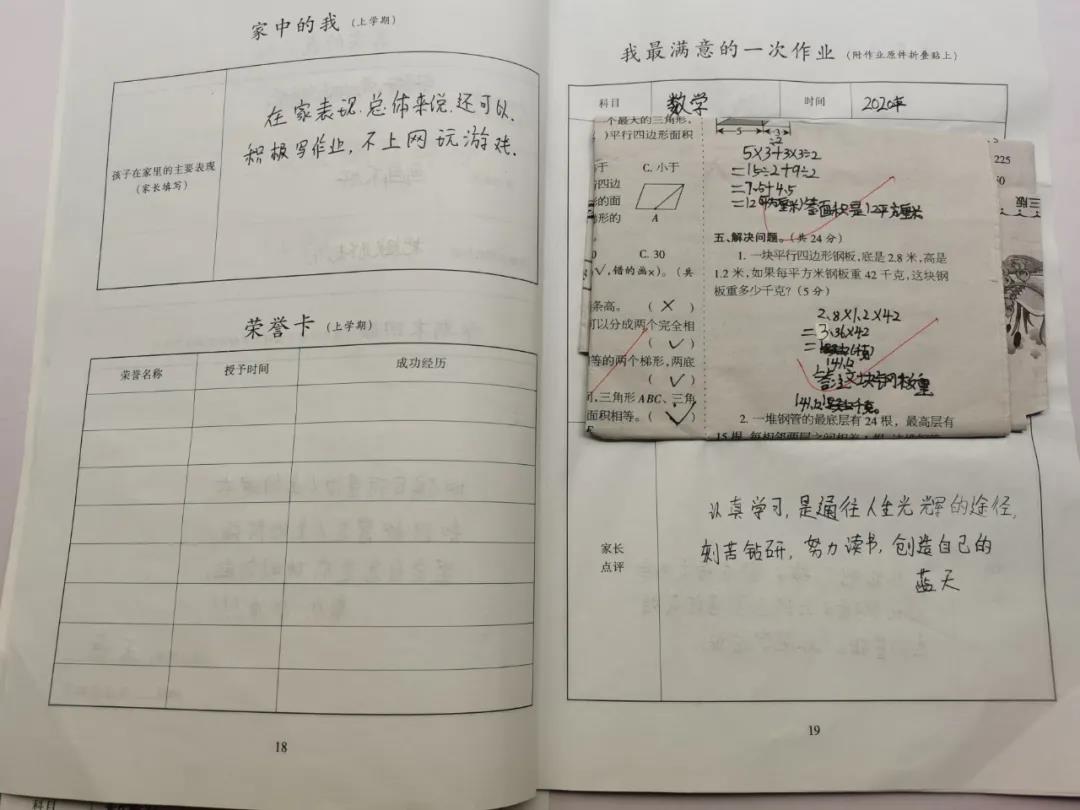 家中的我(上学期)
孩子在家里的主要表现
(家长填写)
在家表现.总体来说.还可以.
积极写作业,不上网玩游戏.
荣誉卡(上学期)
荣誉名称 授予时间 成功经历
18
我最满意的一次作业(附作业原件折叠贴上)
科目 数学 时间 2020年
个最大的三角形,
)平行四边形面积
C. 小于
四边
的面
形的
A
C. 30
√,错的画×)。(共
条高。 ( × )
可以分成两个完全相
( √ )
等的两个梯形,两底
( √ )
,三角形 ABC、三角
面积相等。( √ )
5 3
5×3+3×3÷2
=15÷2+9÷2
=7.5+4.5
=12(平方厘米)答面积是12平方厘米
五、解决问题。(共 24 分)
1. 一块平行四边形钢板,底是 2.8 米,高是
1.2 米,如果每平方米钢板重 42 千克,这块钢
板重多少千克?(5 分)
2.8×1.2×42
=3.36×42
141.12
答:这块钢板重
141.12千克。
2. 一堆钢管的最底层有 24 根,最高层有
225
家长
点评
认真学习,是通往人生光辉的途径,
刻苦钻研,努力读书,创造自己的
蓝天
19
科目